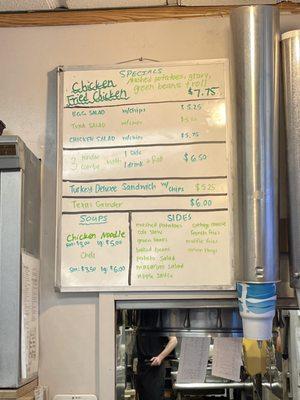 SPECIALS
Chicken Fried Chicken
Mashed potatoes, gravy,
green beans & roll
$7.75
EGG SALAD w/chips $5.25
TUNA SALAD w/chips
CHICKEN SALAD w/chips $5.75
3 Tender Combo With 1 side 1 drink & Roll $6.50
Turkey Deluxe Sandwich w/ chips $5.25
Texas Grinder $6.00
SOUPS
Chicken Noodle
Lg $5.00
Chili
sm $3.50 lg $6.00
SIDES
mashed potatoes
cole slaw
green beans
baked beans
potato salad
macaroni salad
apple sauce
cottage cheese
french fries
waffle fries
onion rings